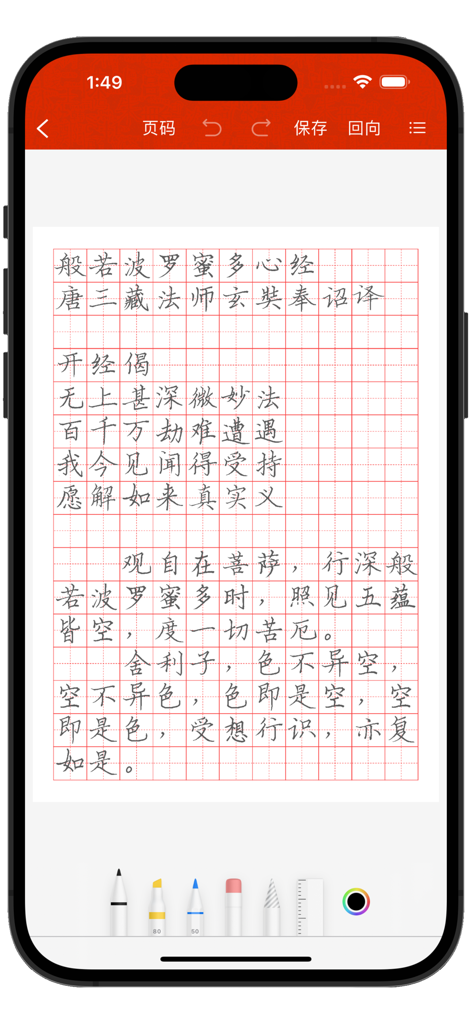 1:49
页码 保存 回向
般若波罗蜜多心经
唐三藏法师玄奘奉诏译
开经偈
无上甚深微妙法
百千万劫难遭遇
我今见闻得受持
愿解如来真实义
观自在菩萨，行深般
若波罗蜜多时，照见五蕴
皆空，度一切苦厄。
舍利子，色不异空，
空不异色，色即是空，空
即是色，受想行识，亦复
如是。
80 50